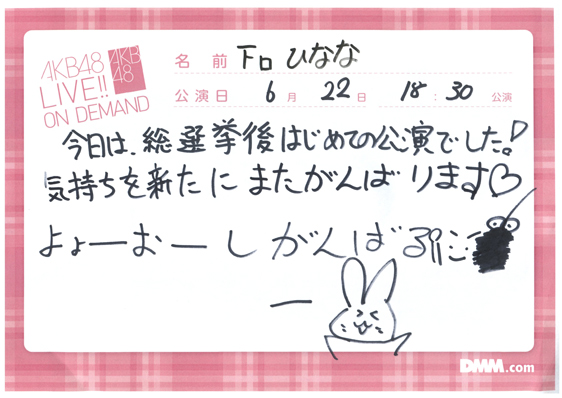 AKB48
LIVE!!
ON DEMAND
AKB
48
名前 下口ひなな
公演日 6月 22日 18:30 公演
今日は、総選挙後はじめての公演でした!
気持ちを新たにまたがんばります♡
よょーおーしがんばるぞ
ー
DMM.com